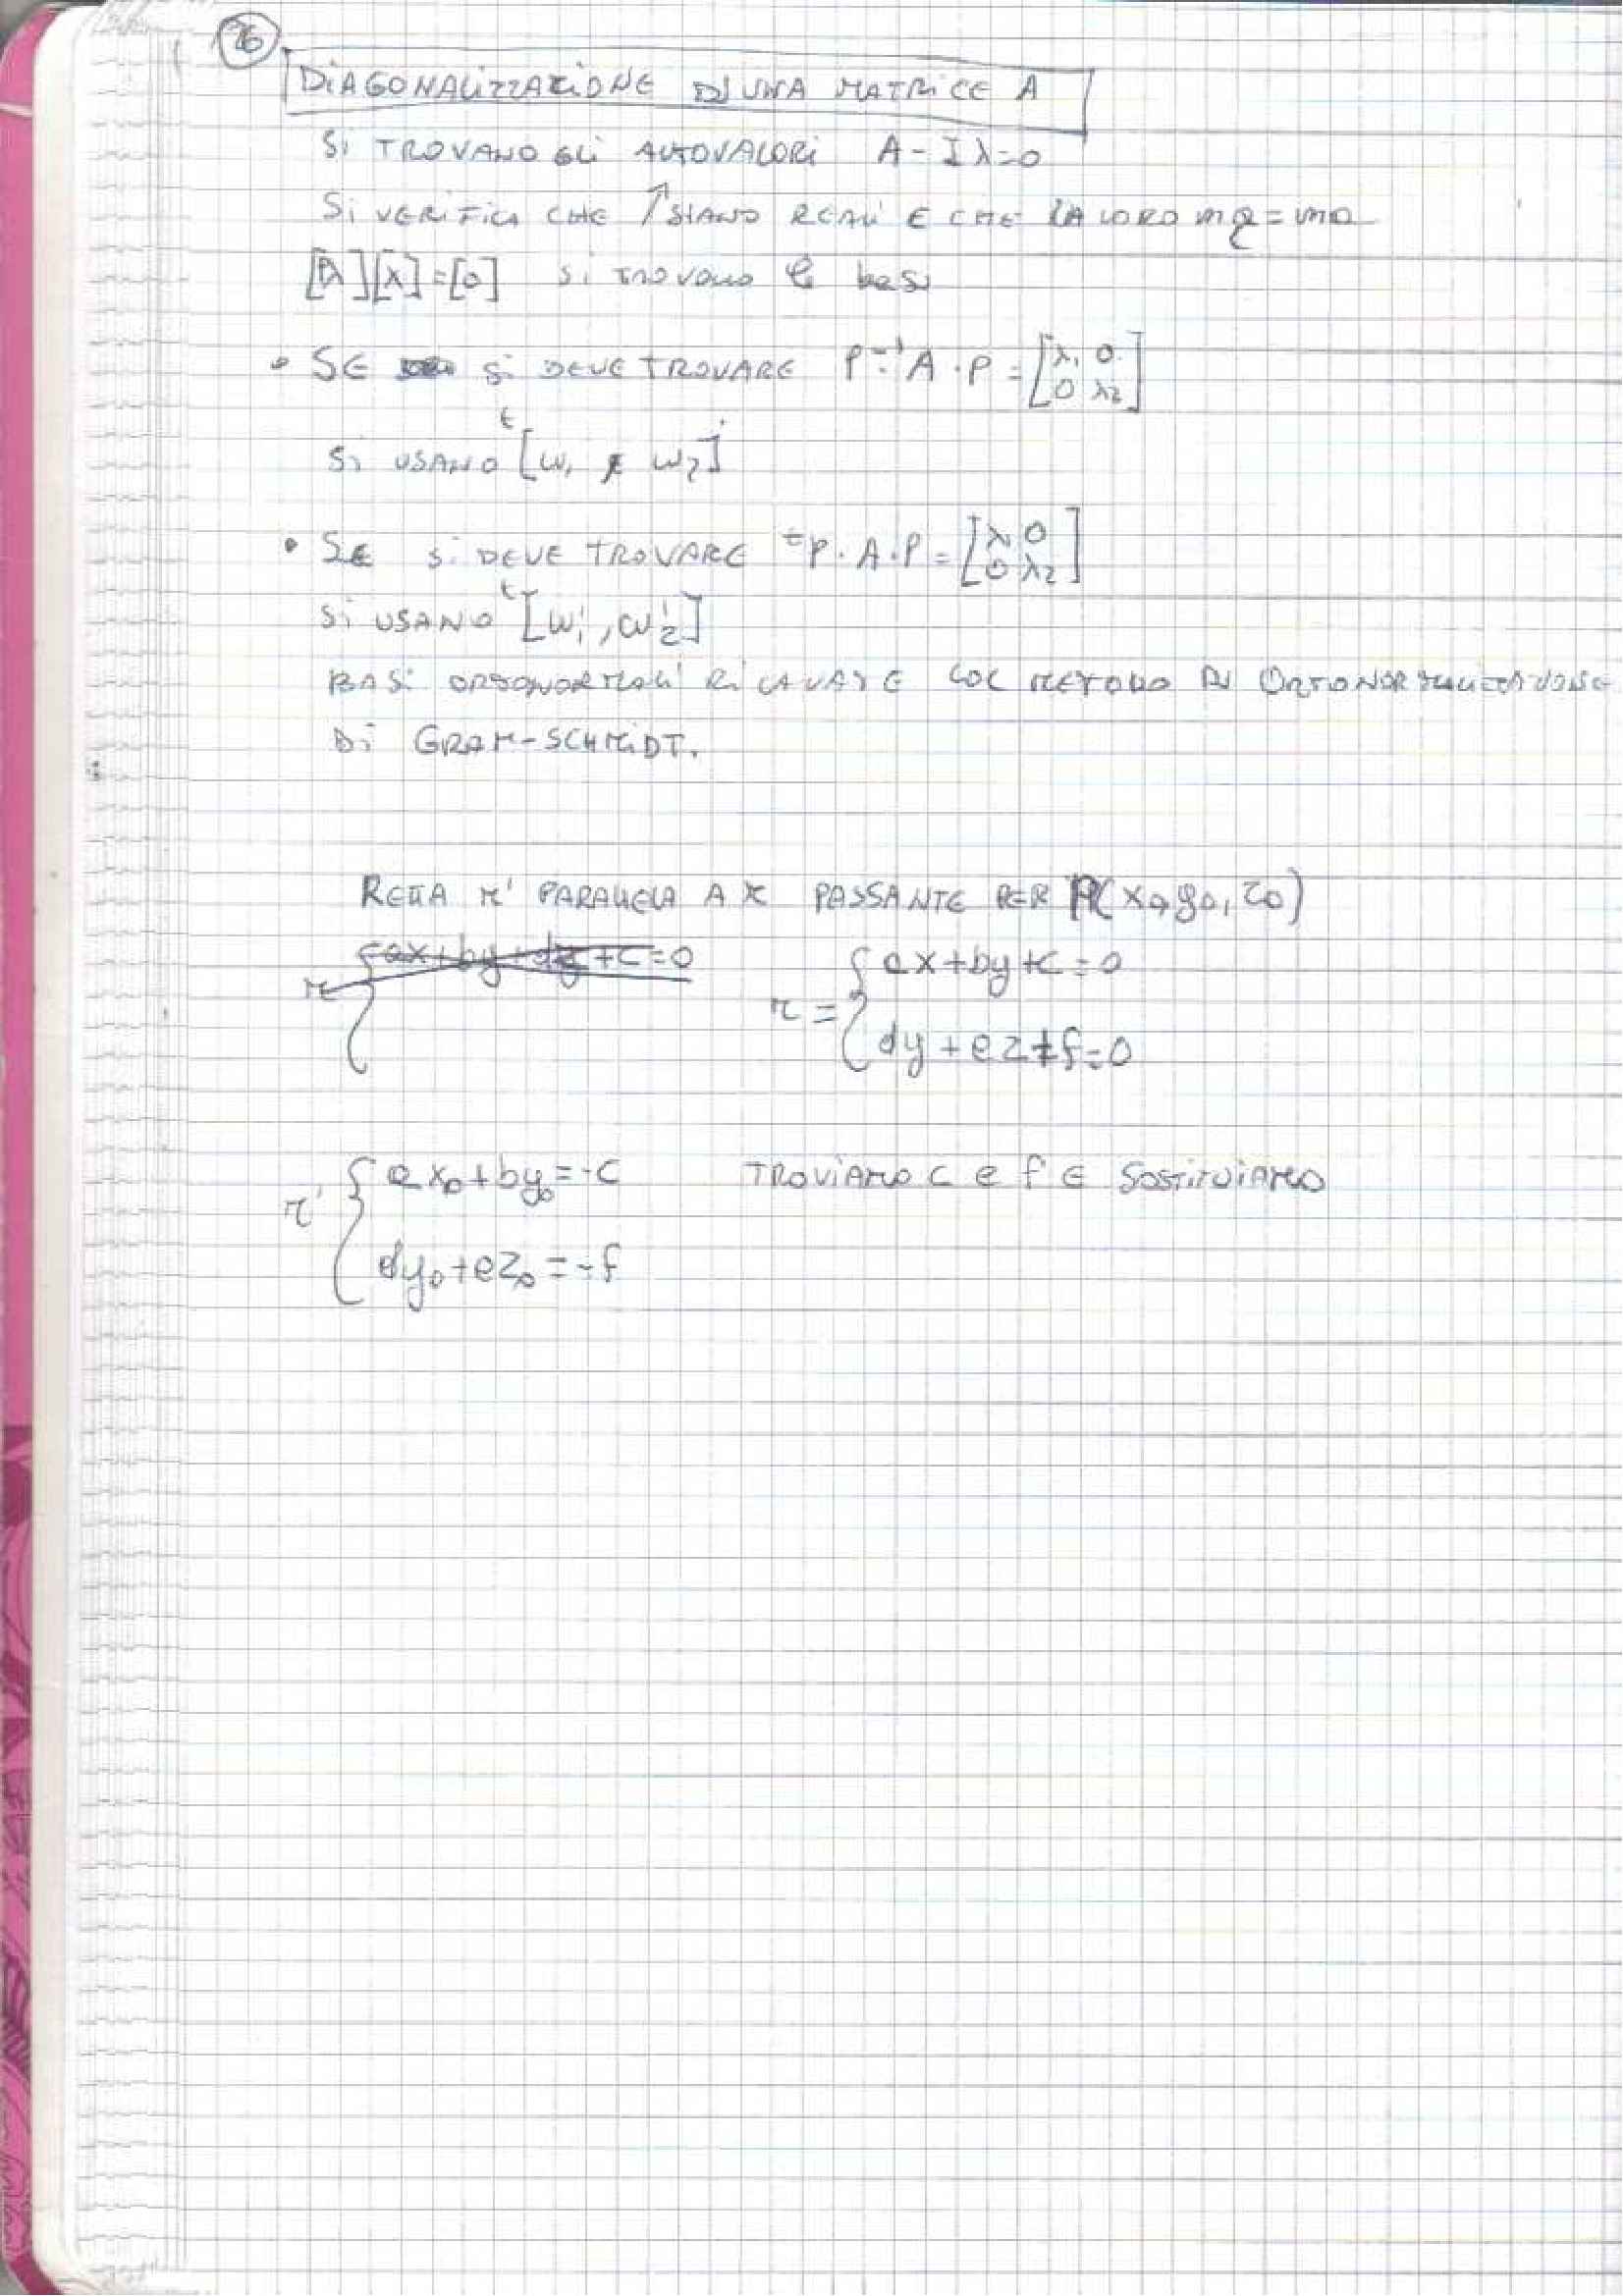 26
DIAGONALIZZAZIONE DI UNA MATRICE A
Si TROVANO GLi AUTOVALORi A - I λ = 0
Si VERIFICA CHE ↑ SIANO REALI E CHE LA LORO mg = ma
[A][x] = [0] si trovano le basi
• SE Si DEVE TROVARE P⁻¹ · A · P = [λ₁ 0
0 λ₂]
Si USANO ᵗ[w₁ , w₂]
• SE Si DEVE TROVARE ᵗP · A · P = [λ₁ 0
0 λ₂]
Si USANO ᵗ[w'₁ , w'₂]
BASI ORTONORMALI RICAVATE COL METODO DI ORTONORMALIZZAZIONE
Di GRAM-SCHMIDT.
RETTA r' PARALLELA A r PASSANTE PER P(x₀, y₀, z₀)
r { ax + by + dz + c = 0
r = { ax + by + c = 0
dy + ez + f = 0
r' { ax₀ + by₀ = -c TROVIAMO c e f E SOSTITUIAMO
dy₀ + ez₀ = -f